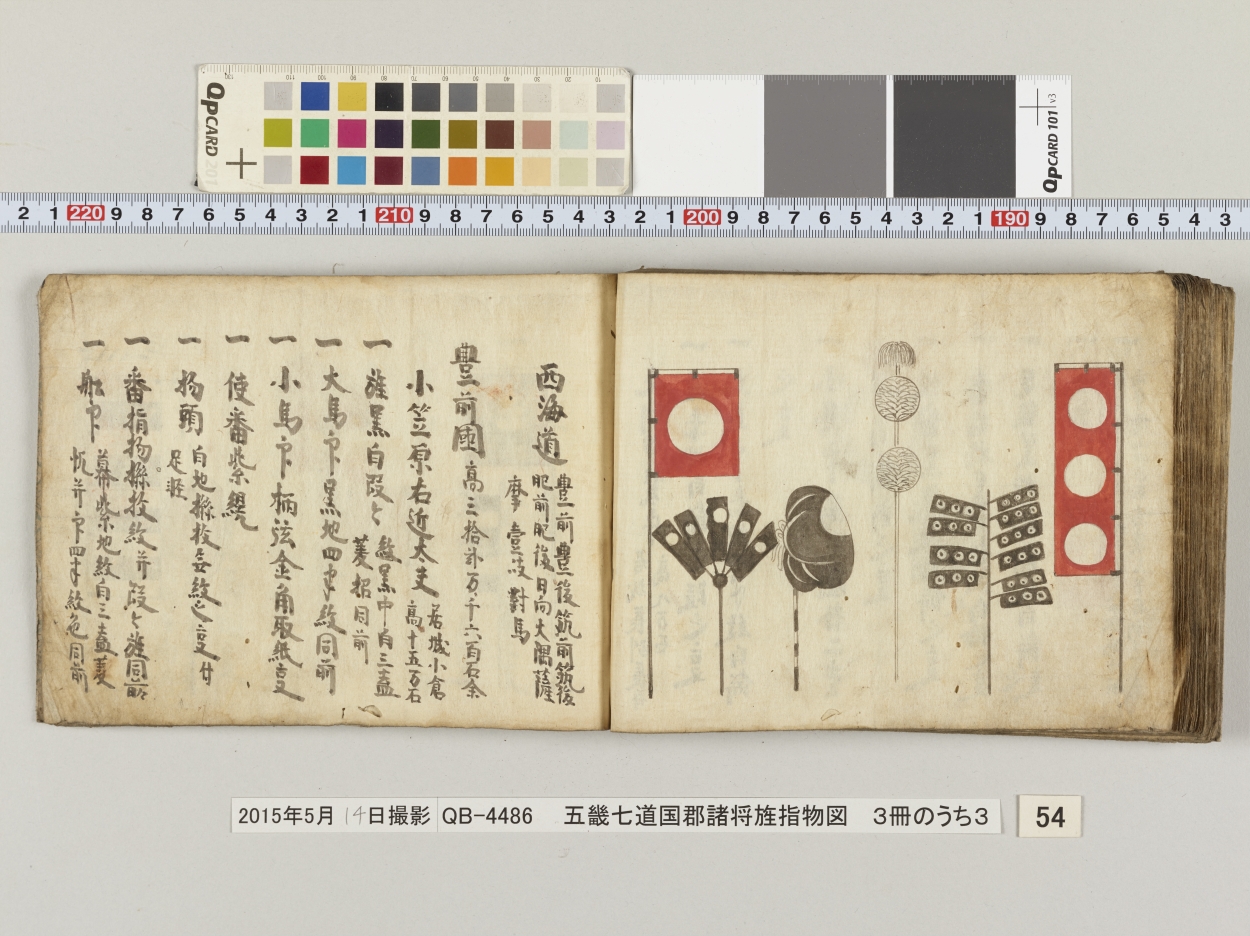 QPCARD 201
QPCARD 101 v3
2 1 220 9 8 7 6 5 4 3 2 1 210 9 8 7 6 5 4 3 2 1 200 9 8 7 6 5 4 3 2 1 190 9 8 7 6 5 4 3
西海道
豊前豊後筑前筑後
肥前肥後日向大隅薩
摩壹岐對馬
豊前國
高三拾弐万千六百石余
小笠原右近大夫
居城小倉
高十五万石
一
旌黒白段々
紋黒中白三盖
菱招同前
一
大馬印黒地四半紋同前
一
小馬印柄弦金角取紙
一
使番紫縨
一
物頭
白地
足軽
一
番指物
紋并段々旌同前
一
船印
幕紫地紋白三盖菱
帆并印四半紋色同前
2015年5月14日撮影
QB-4486 五畿七道国郡諸将旌指物図 3冊のうち3
54